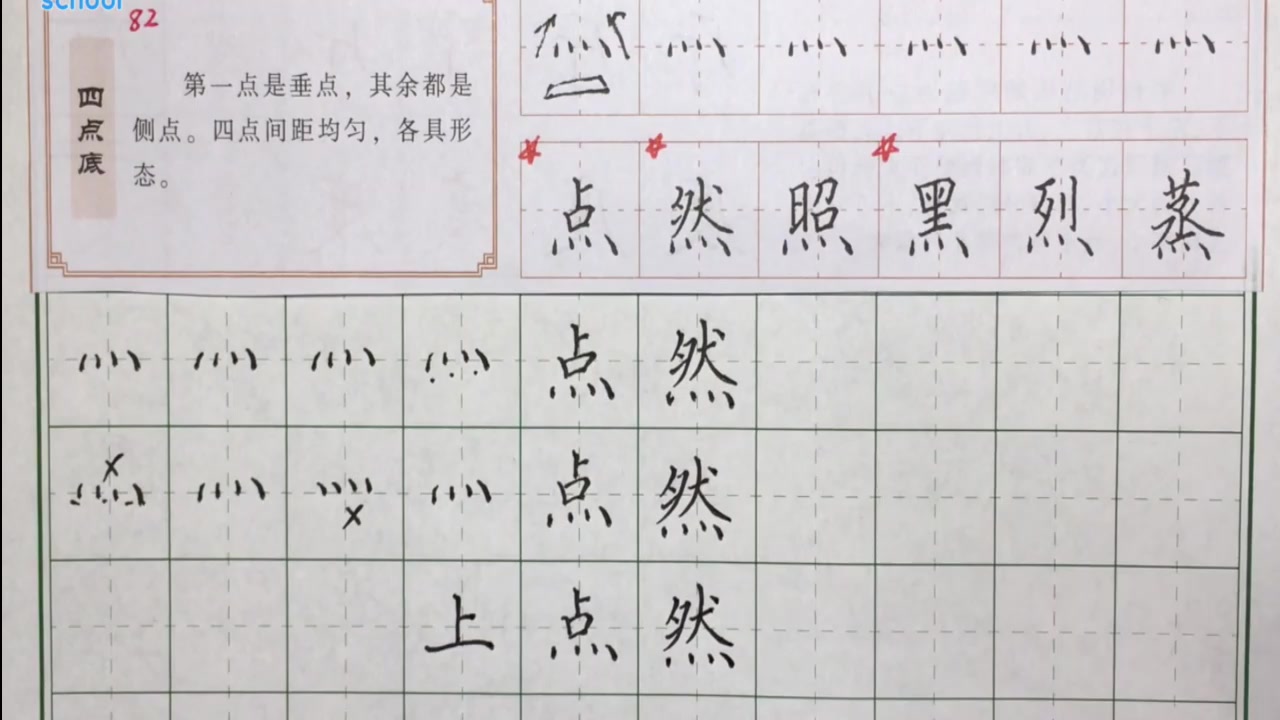 school
82
四点底
第一点是垂点，其余都是
侧点。四点间距均匀，各具形
态。
灬 灬 灬 灬 灬 灬
点 然 照 黑 烈 蒸
灬 灬 灬 灬 点 然
灬 灬 灬 灬 点 然
上 点 然